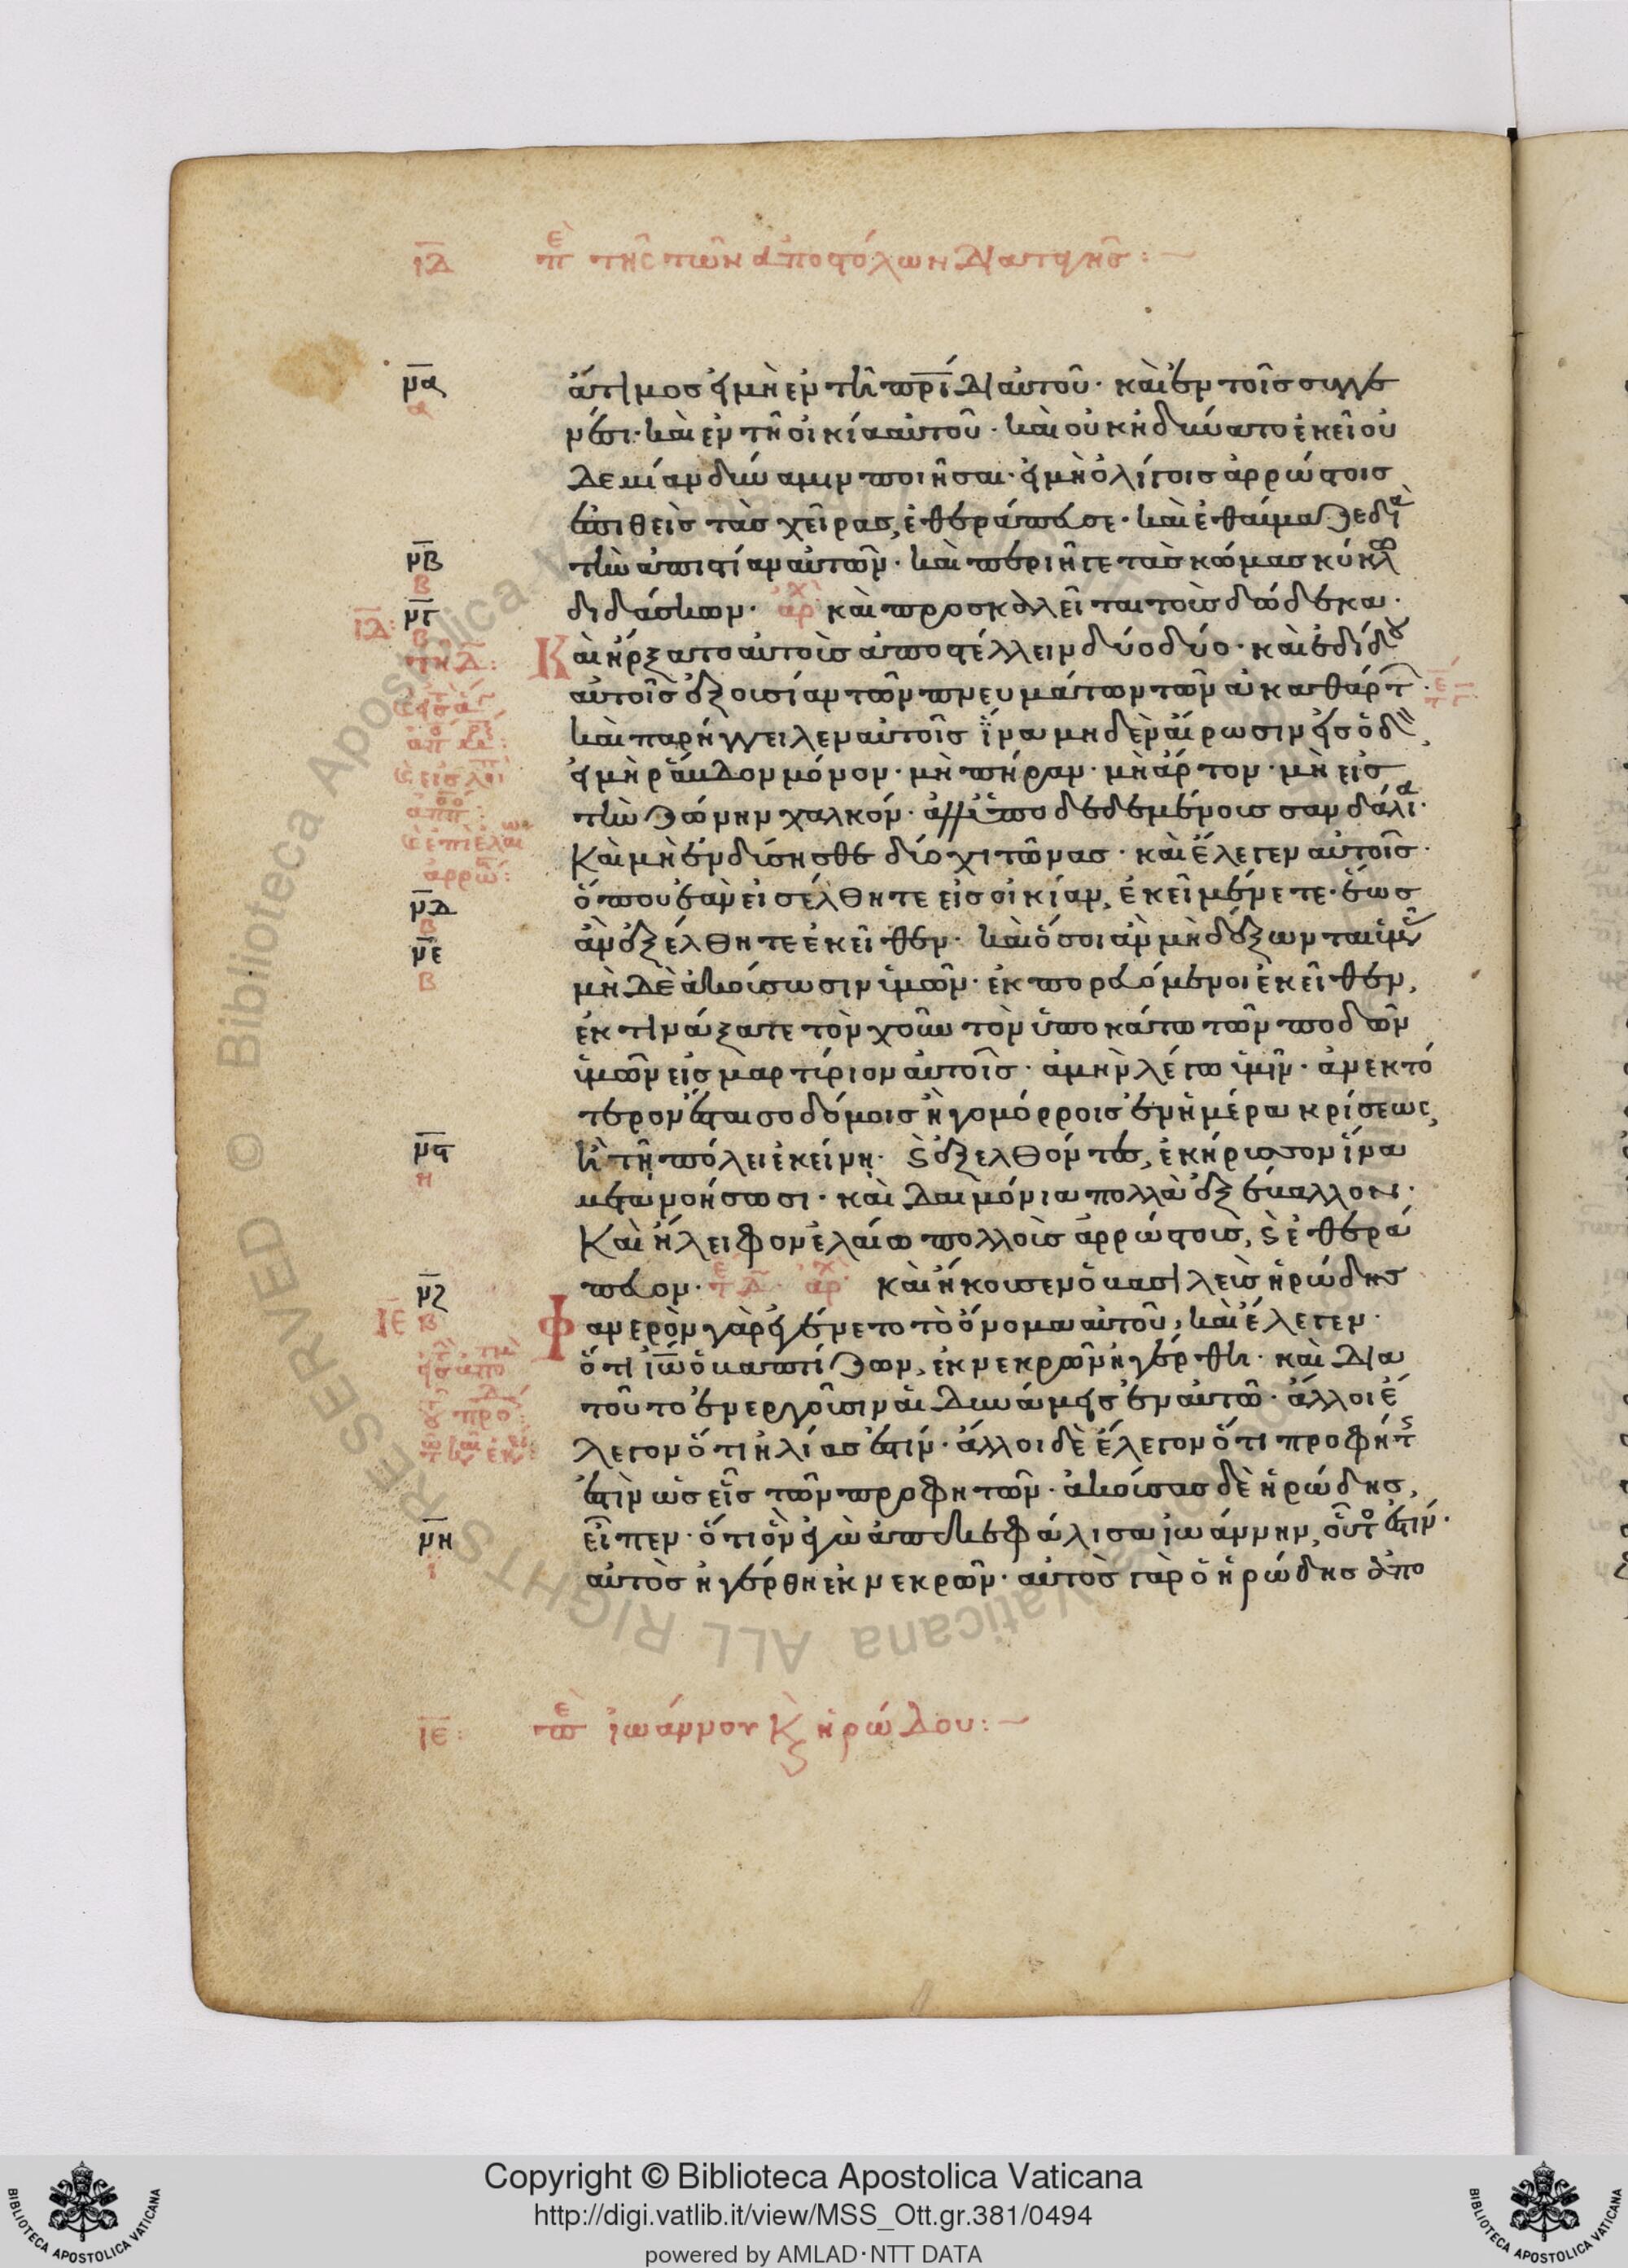 ιδ πε της των αποστόλων διαταγης :
μα ἄτιμος εἰ μὴ ἐν τῆ πρίδι αὐτοῦ· καὶ ἐν τοῖς συγγε
α
νέσι· καὶ ἐν τῆ οἰκία αὐτοῦ· καὶ οὐκ ἠδύνατο ἐκεῖ οὐ
δεμίαν δύναμιν ποιῆσαι· εἰ μὴ ὀλίγοις ἀρρώστοις
ἐπιθεὶς τὰς χεῖρας, ἐθεράπευσε· καὶ ἐθαύμαζε διὰ
μβ τὴν ἀπιστίαν αὐτῶν· καὶ περιῆγε τὰς κώμας κύκλω
β
μγ διδάσκων· ἀρχ καὶ προσκαλεῖται τοὺς δώδεκα·
ιδ: β
Καὶ ἤρξατο αὐτοὺς ἀποστέλλειν δύο δύο· καὶ ἐδίδου
αὐτοῖς ἐξουσίαν τῶν πνευμάτων τῶν ἀκαθάρτ·
καὶ παρήγγειλεν αὐτοῖς ἵνα μηδὲν αἴρωσιν εἰς ὁδὸν,
εἰ μὴ ῥάβδον μόνον· μὴ πήραν· μὴ ἄρτον· μὴ εἰς
τὴν ζώνην χαλκόν· ἀλλ' ὑποδεδεμένους σανδάλια·
Καὶ μὴ ἐνδύσησθε δύο χιτῶνας· καὶ ἔλεγεν αὐτοῖς·
ὅπου ἐὰν εἰσέλθητε εἰς οἰκίαν, ἐκεῖ μένετε· ἕως
μδ
β
ἂν ἐξέλθητε ἐκεῖθεν· καὶ ὅσοι ἂν μὴ δέξωνται ὑμᾶς
με
μὴ δὲ ἀκούσωσιν ὑμῶν· ἐκπορευόμενοι ἐκεῖθεν,
β
ἐκτινάξατε τὸν χοῦν τὸν ὑποκάτω τῶν ποδῶν
ὑμῶν εἰς μαρτύριον αὐτοῖς· ἀμὴν λέγω ὑμῖν· ἀνεκτό
τερον ἔσται σοδόμοις ἢ γομόρροις ἐν ἡμέρα κρίσεως,
μϛ ἢ τῆ πόλει ἐκείνη· ϗ ἐξελθόντες, ἐκήρυσσον ἵνα
η
μετανοήσωσι· καὶ δαιμόνια πολλὰ ἐξέβαλλον·
Καὶ ἤλειφον ἐλαίω πολλοὺς ἀρρώστους, ϗ ἐθερά
μζ πευον· ἀρχ καὶ ἤκουσεν ὁ βασιλεὺς ἡρώδης
ιε β
Φανερὸν γὰρ ἐγένετο τὸ ὄνομα αὐτοῦ, καὶ ἔλεγεν·
ὅτι ἰω ὁ βαπτίζων, ἐκ νεκρῶν ἠγέρθη· καὶ δια
τοῦτο ἐνεργοῦσιν αἱ δυνάμεις ἐν αὐτῶ· ἄλλοι ἔ
λεγον ὅτι ἠλίας ἐστίν· ἄλλοι δὲ ἔλεγον ὅτι προφήτης
ἐστὶν ὡς εἷς τῶν προφητῶν· ἀκούσας δὲ ἡρώδης,
μη εἶπεν· ὅτι ὃν ἐγὼ ἀπεκεφάλισα ἰωάννην, οὗτός ἐστιν·
ι
αὐτὸς ἠγέρθη ἐκ νεκρῶν· αὐτὸς γὰρ ὁ ἡρώδης ἀπο
ιε: πε ἰωάννου ϗ ἡρώδου :
Biblioteca Apostolica Vaticana
© Biblioteca Apostolica Vaticana ALL RIGHTS RESERVED
Copyright © Biblioteca Apostolica Vaticana
http://digi.vatlib.it/view/MSS_Ott.gr.381/0494
powered by AMLAD·NTT DATA
BIBLIOTECA APOSTOLICA VATICANA
BIBLIOTECA APOSTOLICA VATICANA